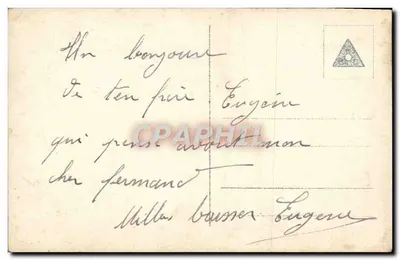 Un bonjour
de ton frère Eugène
qui pense avout mon
cher fernand
Milles baisser Eugene
CPAPHIL